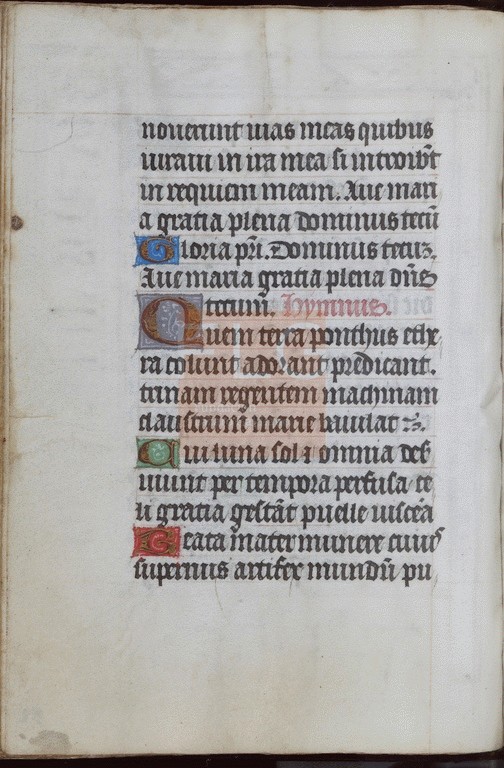 nouerunt uias meas quibus
iuraui in ira mea si introibt̄
in requiem meam. Aue mari
a gratia plena dominus tecū
Gloria pr̄i. Dominus tecuꝫ.
Aue maria gratia plena dn̄s
tecum. Hymnus.
Quem terra ponthus ethe
ra colunt adorant predicant.
trinam regentem machinam
claustrum marie baiulat
Cui luna sol ⁊ omnia des̄
uiunt per tempora perfusa ce
li gratia gestāt puelle uiscēa
Beata mater munere cuius
supernus artifex mundū pu